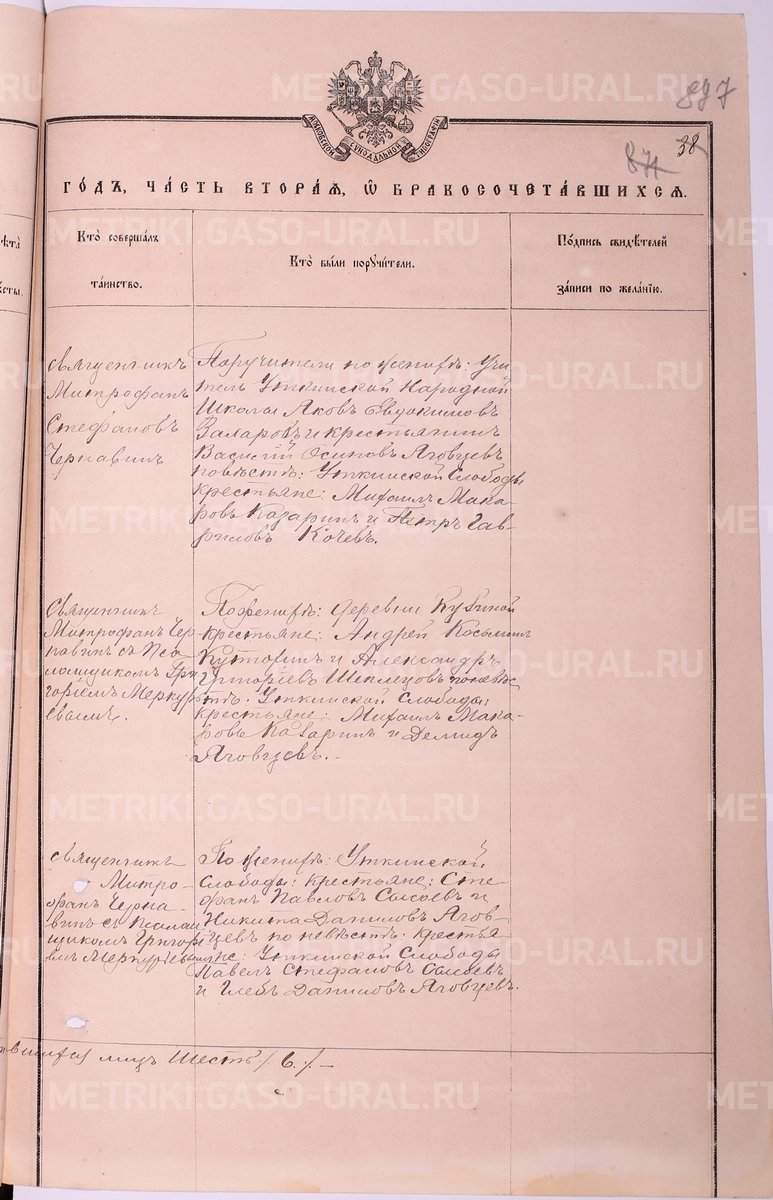 METRIKI.GASO-URAL.RU
897
МОСКОВСКОЙ СѴНОДАЛЬНОЙ ТИПОГРАФІИ
871 38
ГОДЪ, ЧАСТЬ ВТОРАЯ, Ѿ БРАКОСОЧЕТАВШИХСЯ.
Кто совершалъ
таинство.
Кто были поручители.
Подпись свидѣтелей
записи по желанію.
Священникъ
Митрофанъ
Стефановъ
Чернавинъ
Поручители по женихѣ: Учи
тель Уткинской Народной
Школы Яковъ Евдокимовъ
Валаровъ и крестьянинъ
Василій Осиповъ Яговцевъ
по невѣстѣ: Уткинской Слободы
крестьяне: Михаилъ Мака-
ровъ Казаринъ и Петръ Гав-
риловъ Кочевъ.
Священникъ
Митрофанъ Чер
навинъ съ Пса-
ломщикомъ Гри
горіемъ Меркурь
евымъ.
По женихѣ: деревни
крестьяне: Андрей Косьминъ
и Александръ
Григорьевъ Шеплецовъ по невѣс
тѣ: Уткинской Слободы
крестьяне: Михаилъ Мака-
ровъ Казаринъ и Демидъ
Яговцевъ.-
Священникъ
Митро-
фанъ Черна-
винъ съ Псалом
щикомъ Григорі
емъ Меркурьевымъ
По женихѣ: Уткинской
Слободы: крестьяне: Сте-
фанъ Павловъ Сысоевъ и
Никита Даниловъ Ягов-
цевъ по невѣстѣ: крестья-
не: Уткинской Слободы
Павелъ Стефановъ Сысоевъ
и Глебъ Даниловъ Яговцевъ.
лицъ Шесть /6./-